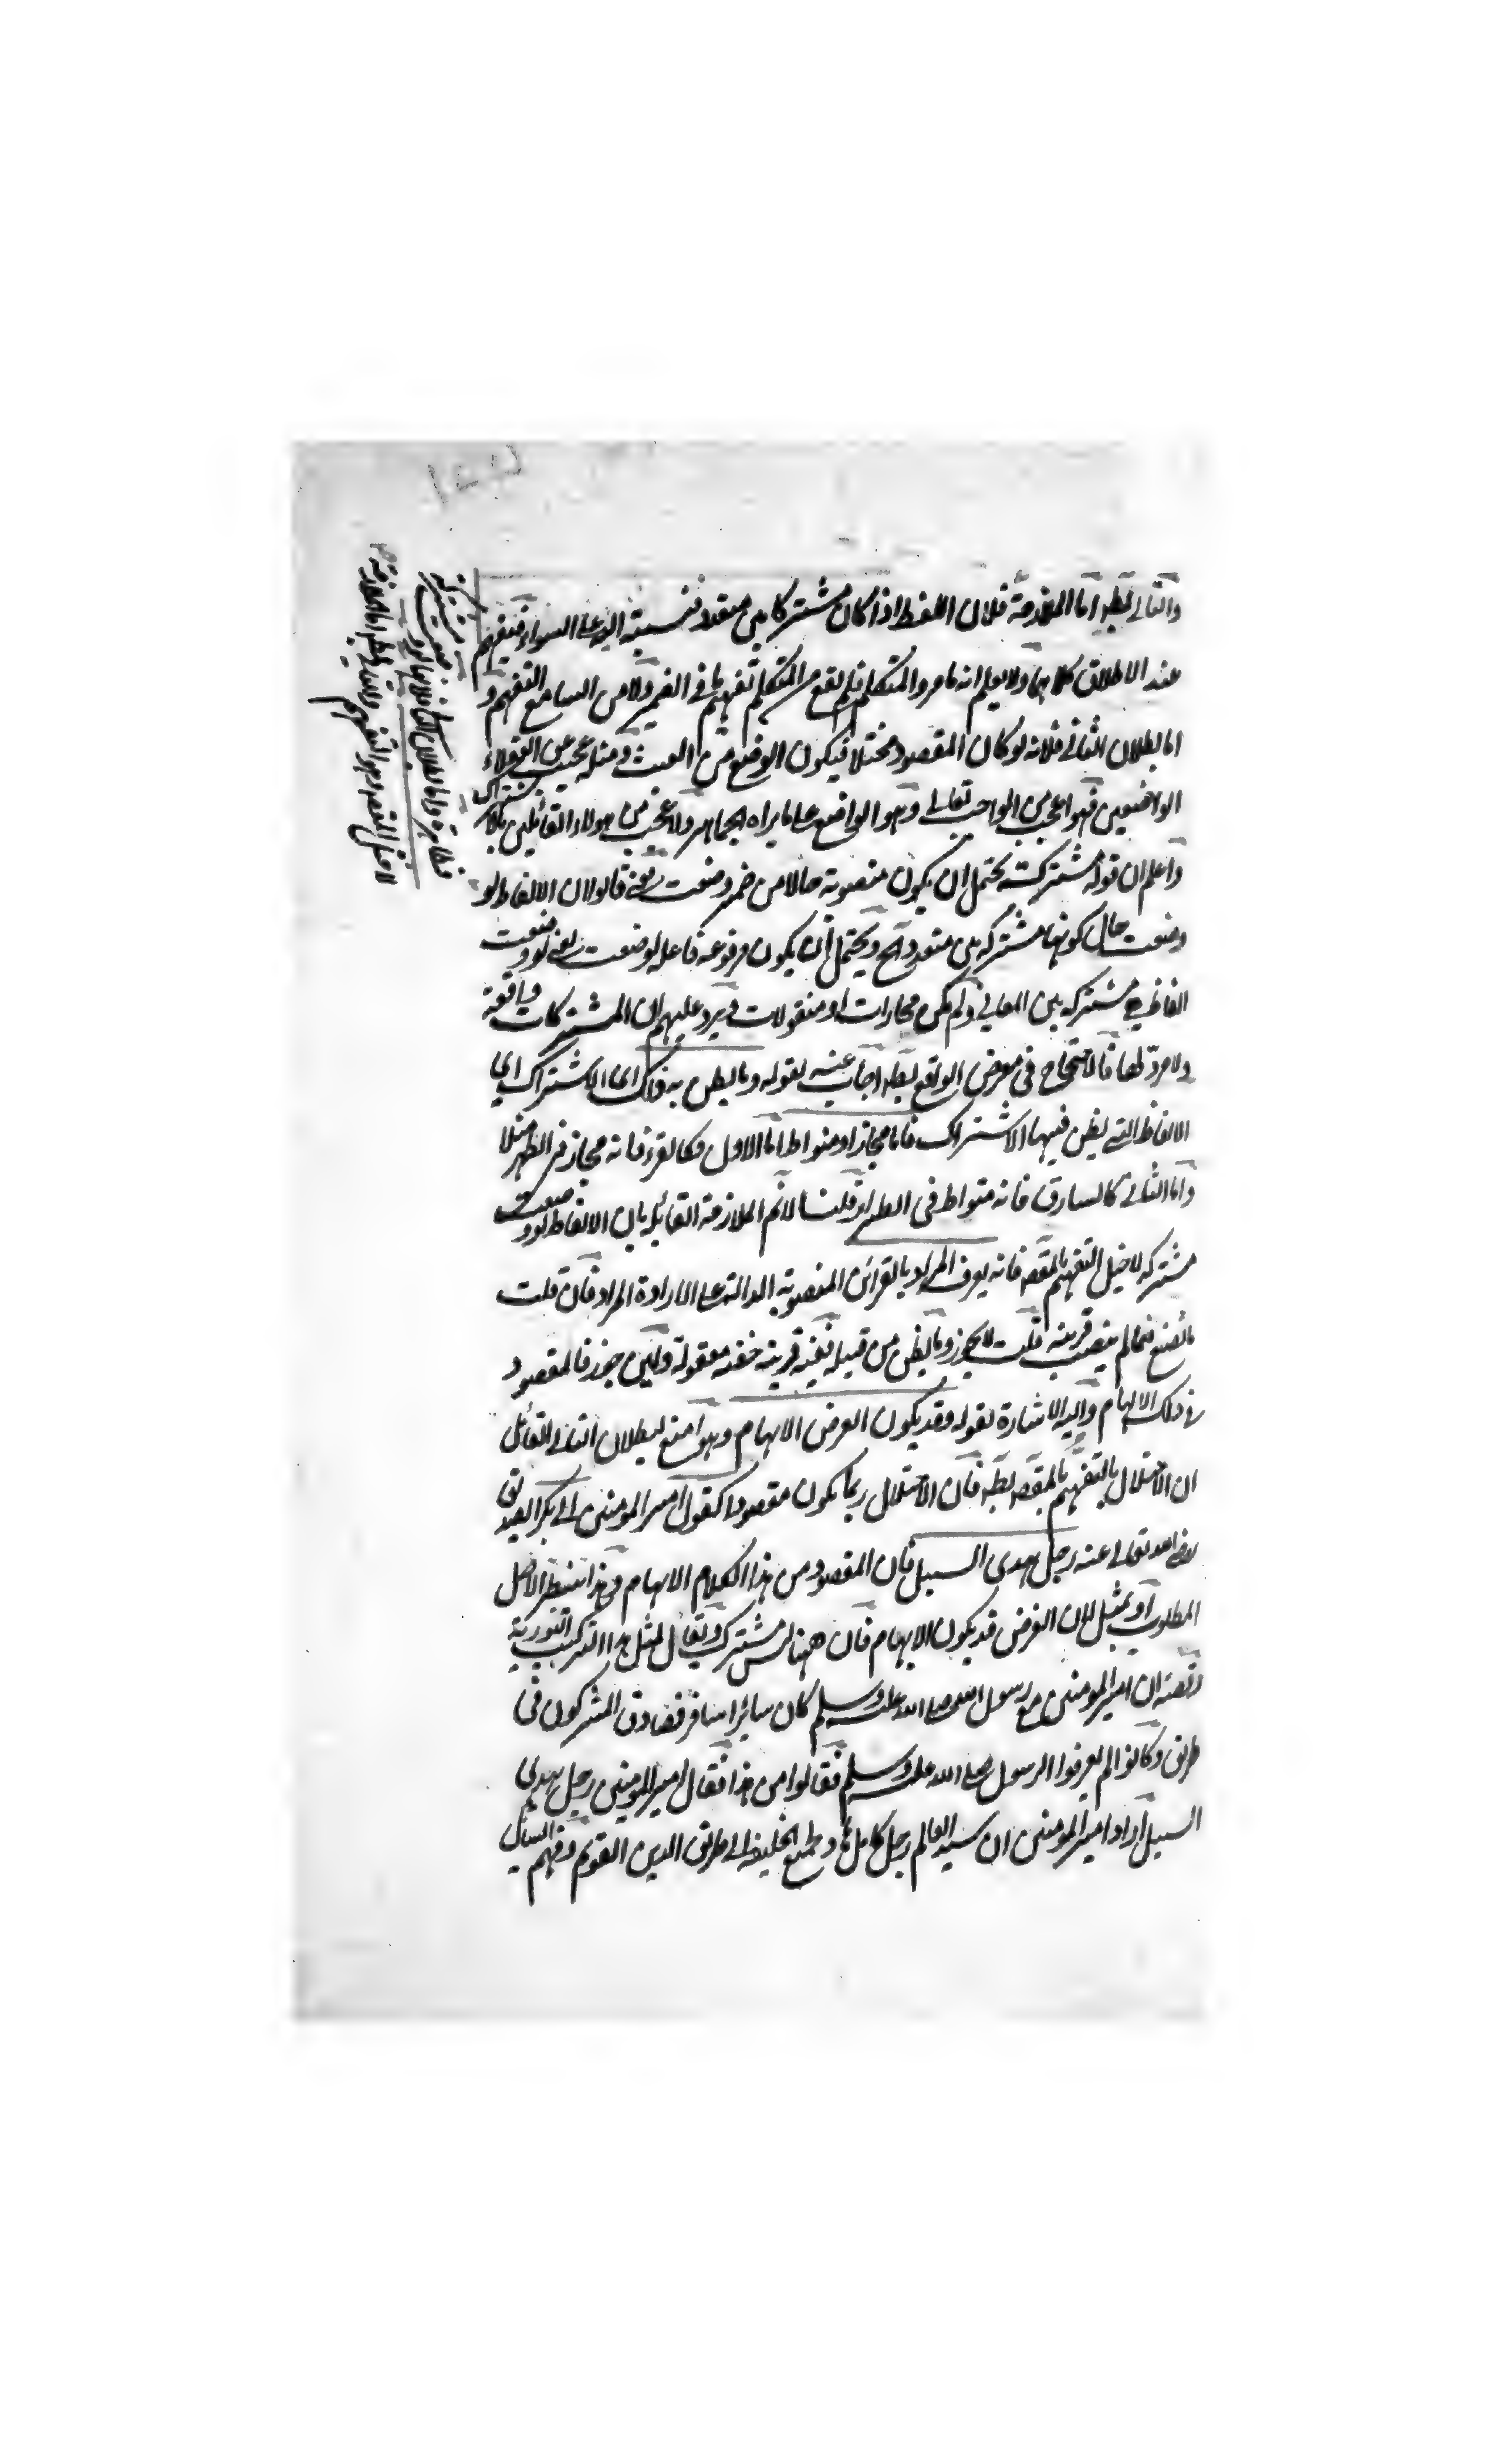 والتالي بط اما الملازمة فلان اللفظ اذا كان مشتركا بين متعدد فنسبته اليه على السواء فيفهم
عند الاطلاق كلاهما ولا يعلم انه ما مراد المتكلم فلم يقع من المتكلم تفهيم ما في الضمير ولا من السامع التفهم و
اما بطلان التالي فلانه لو كان المقصود مختلا فيكون الوضع من العبث ومثله عجيب عن العقلاء
الواضعين فهو اعجب من الواجب تعالى وهو الواضع على ما يراه الجماهير ولا عجب من هولاء القائلين بالاشتراك
واعلم ان قوله مشتركة يحتمل ان يكون منصوبة حالا من ضمير وضعت يعني قالوا لان الالفاظ لو
وضعت حال كونها مشتركة بين متعدد الخ ويحتمل ان يكون مرفوعة فاعله لوضعت يعني لو وضعت
الفاظ مشتركة بين المعاني ولم يكن مجازات او منقولات ويرد عليهم ان المشتركات واقعة
ولا مرد لها فالاحتجاج في معرض الواقع بط اجاب عنه بقوله وما يظن به ذاك اي الاشتراك اي
الالفاظ التي يظن فيها الاشتراك فاما مجاز او متواط اما الاول فكالقرء فانه مجاز في الطهر مثلا
واما الثاني كالسارق فانه متواط في الطرار قلنا لا نم الملازمة القائلة بان الالفاظ لو وضعت
مشتركة لاختل التفهيم بالمقصود فانه يعرف المراد بالقرائن المنصوبة الدالة على الارادة المراد فان قلت
ما تصنع فيما لم ينصب قرينة قلت لا يجوز وما يظن من قبيله ففيه قرينة خفية معقولة ولئن جوز فالمقصود
في ذلك الابهام واليه الاشارة بقوله وقد يكون الغرض الابهام وهو منع لبطلان التالي القائل
ان الاختلال بالتفهيم بالمقصود بط فان الاختلال ربما يكون مقصودا كقول امير المومنين ابي بكر الصديق
رضي الله تعالى عنه رجل يهدي السبيل فان المقصود من هذا الكلام الابهام وهذا تنظير لاصل
المطلوب او تمثيل لان الغرض قد يكون الابهام فان ههنا ليس مشترك ويقال لمثل هذا التركيب التورية
وقصته ان امير المومنين مع رسول الله صلى الله عليه وسلم كان سائرا مسافرا فصادف المشركون في
طريق وكانوا لم يعرفوا الرسول صلى الله عليه وسلم فقالوا من هذا فقال امير المومنين رجل يهدي
السبيل اراد امير المومنين ان سيد العالم رجل كامل هاد لجميع الخليقة الى طريق الدين القويم وفهم السائل